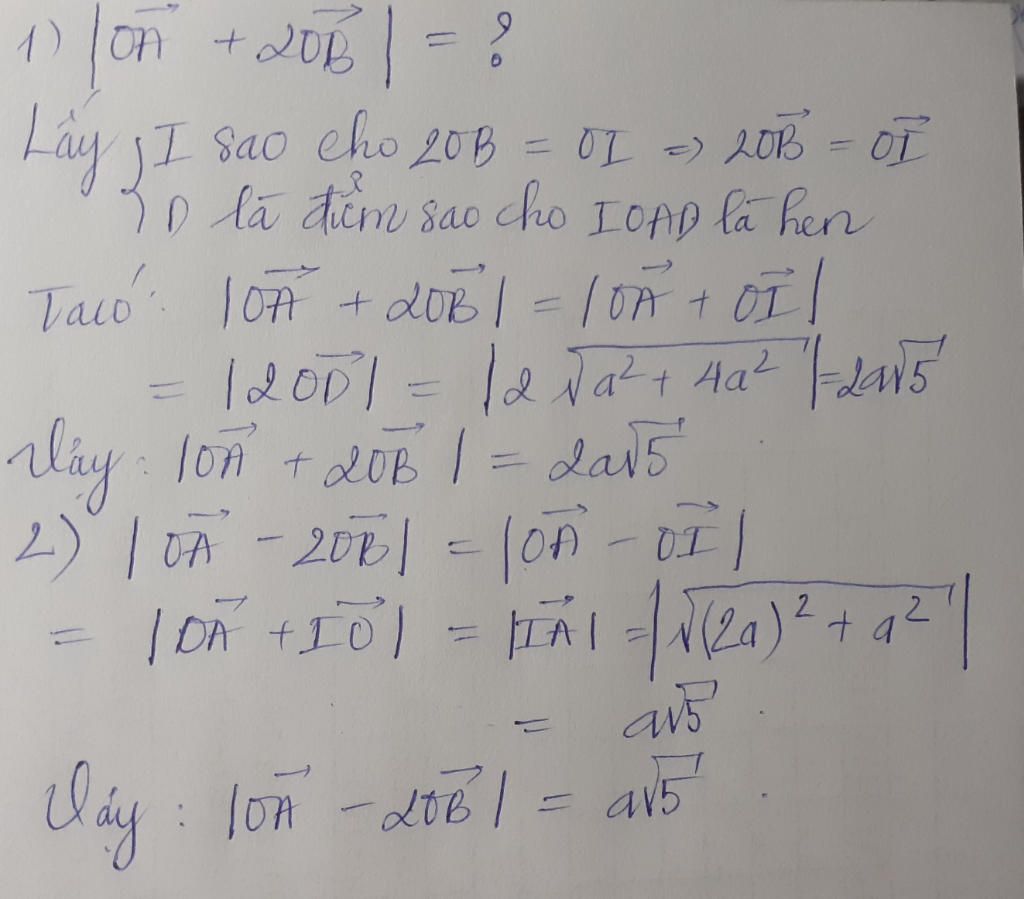 1) |OA⃗ + 2OB⃗| = ?
Lấy { I sao cho 2OB = OI => 2OB⃗ = OI⃗
D là điểm sao cho IOAD là hcn
Ta có: |OA⃗ + 2OB⃗| = |OA⃗ + OI⃗|
= |2OD⃗| = |2√(a² + 4a²)| = 2a√5
Vậy: |OA⃗ + 2OB⃗| = 2a√5
2) |OA⃗ - 2OB⃗| = |OA⃗ - OI⃗|
= |OA⃗ + IO⃗| = |IA⃗| = |√((2a)² + a²)|
= a√5.
Vậy: |OA⃗ - 2OB⃗| = a√5.